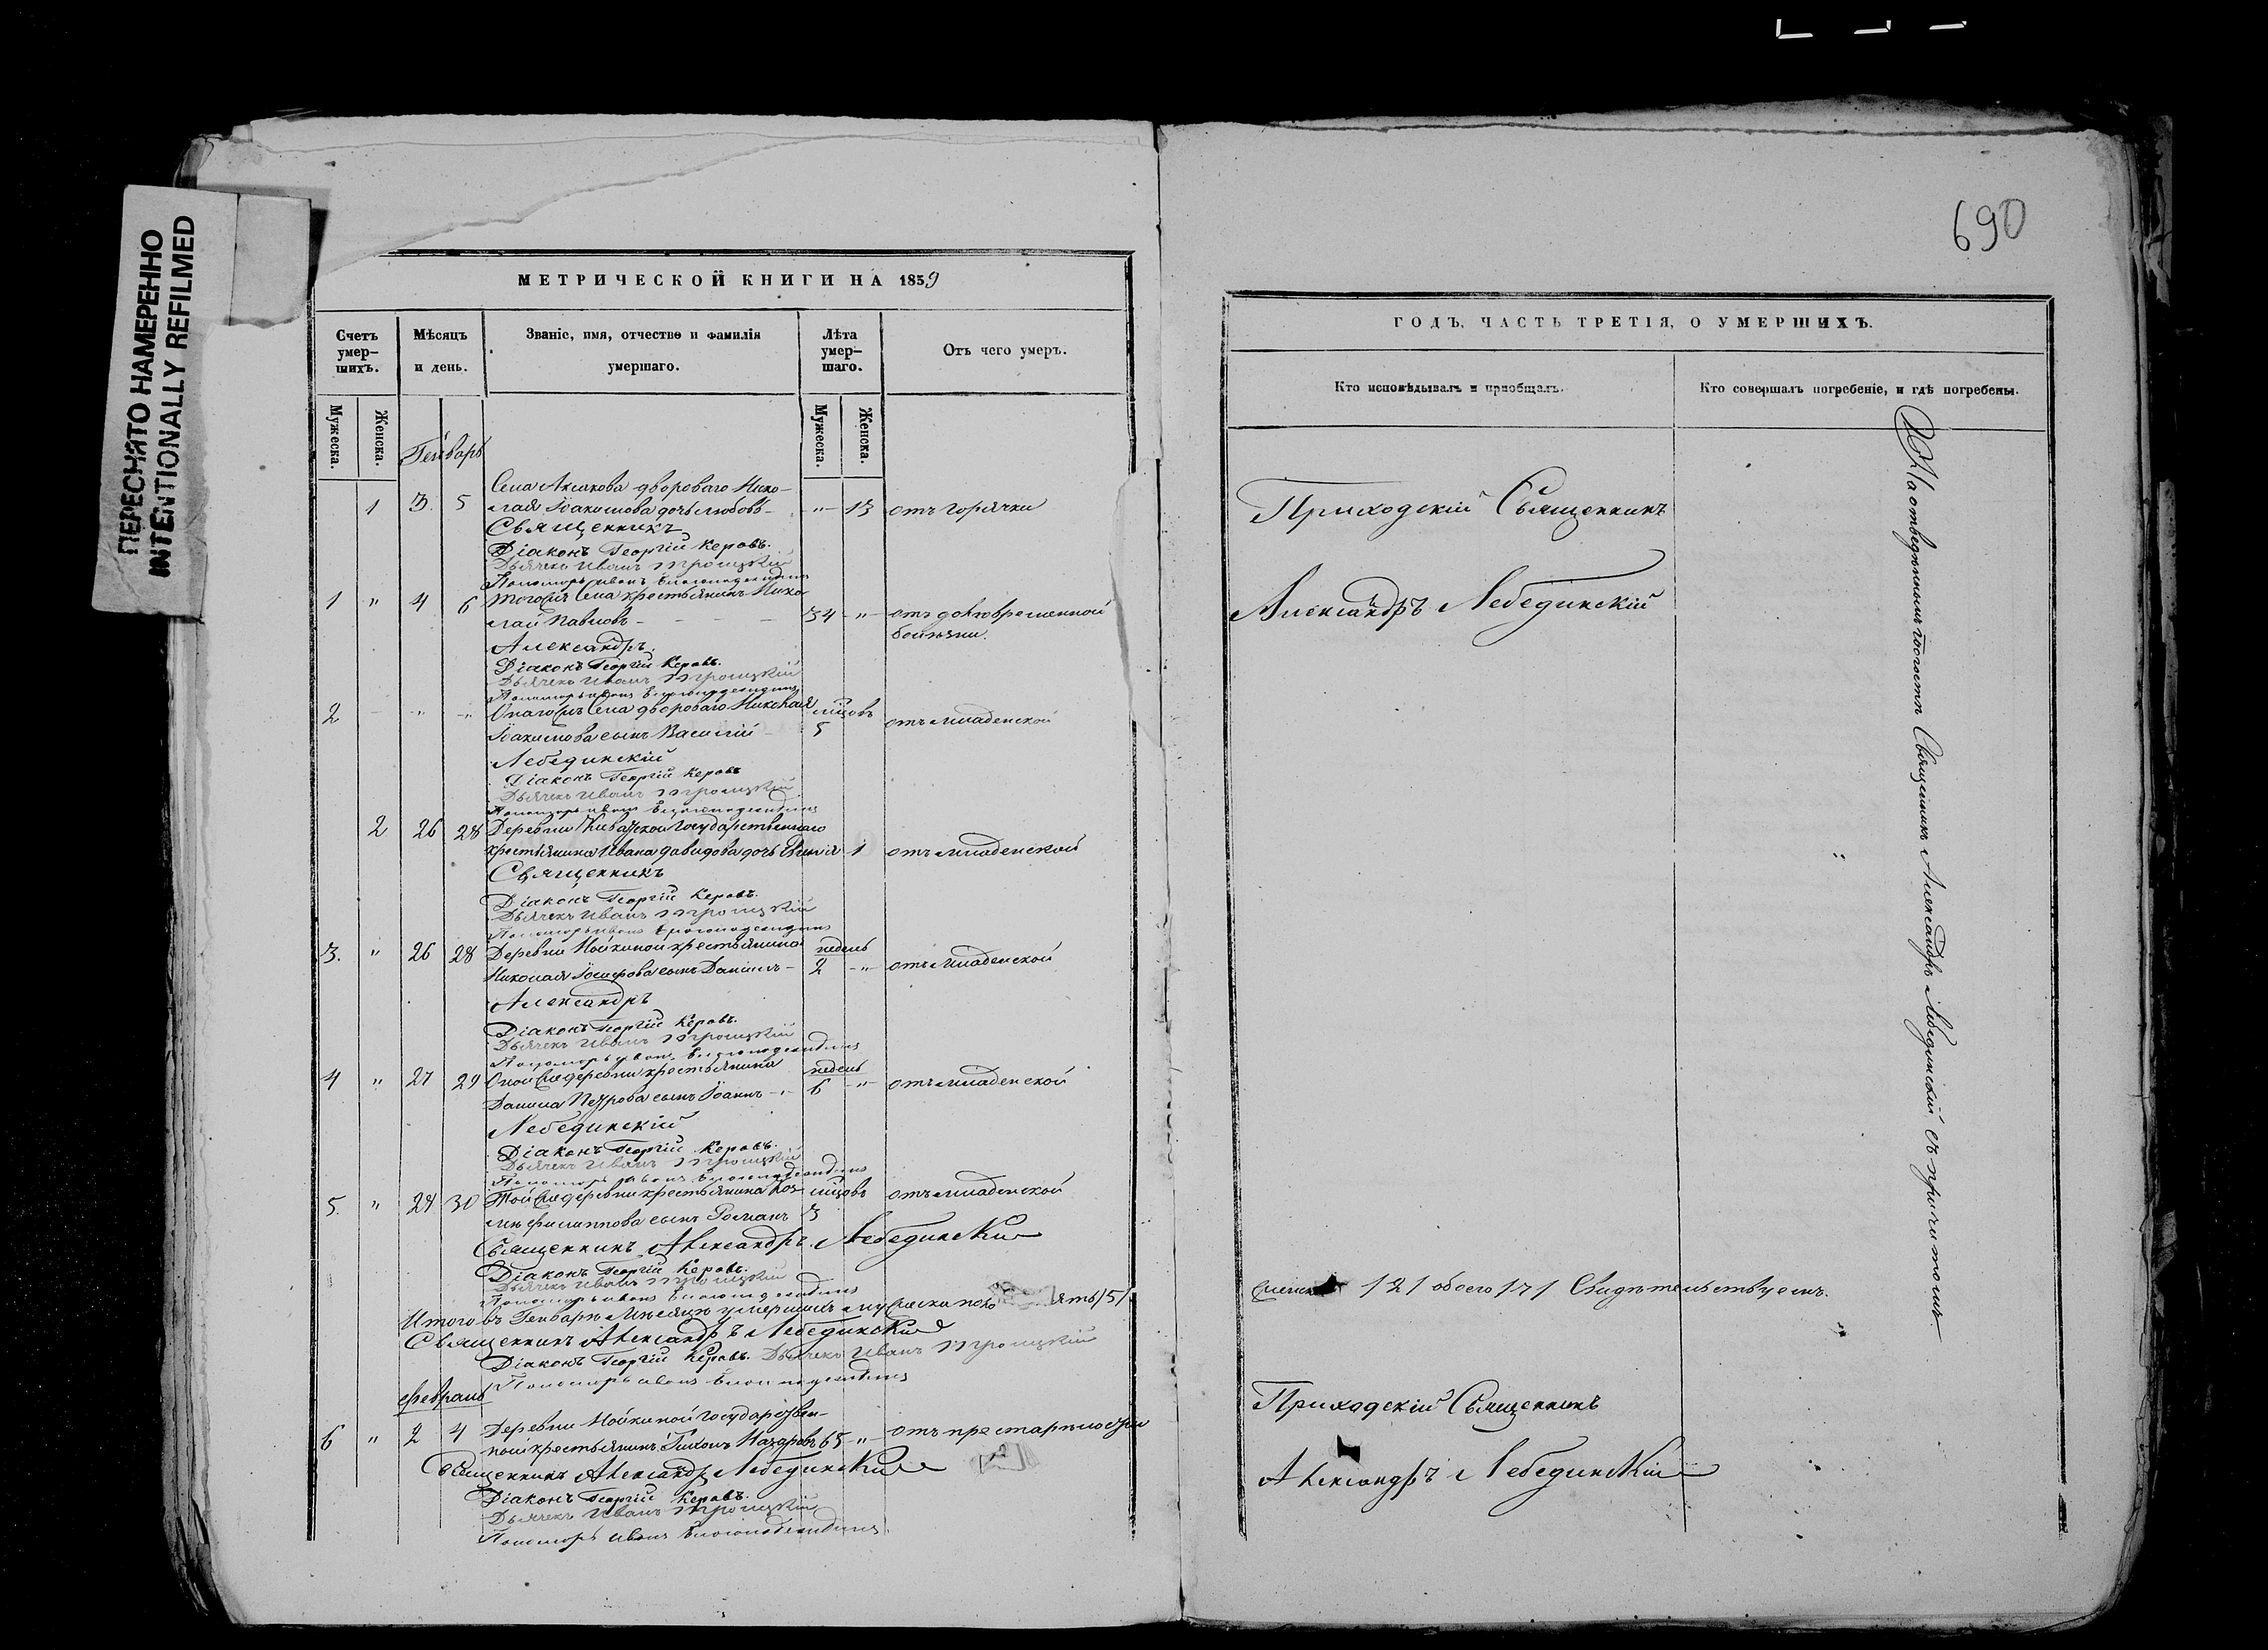 ПЕРЕСНЯТО НАМЕРЕННО
INTENTIONALLY REFILMED
690
МЕТРИЧЕСКОЙ КНИГИ НА 1859
Счетъ умер-шихъ.
Мѣсяцъ и день.
Званіе, имя, отчество и фамилія умершаго.
Лѣта умер-шаго.
Отъ чего умеръ.
Мужеска.
Женска.
Мужеска.
Женска.
Генварь
Села Аксакова двороваго Нико-
1 3. 5 лая Іоакимова дочь Любовь - " 13 отъ горячки
Священникъ
Діаконъ Георгій Керовъ.
Дьячекъ Иванъ Троицкій
Пономорь Иванъ
1 " 4 6 Тогожъ Села крестьянинъ Нико
лай Павловъ - 34 " отъ долговременной
болѣзни.
Александръ
Діаконъ Георгій Керовъ.
Дьячекъ Иванъ Троицкій
Пономорь Иванъ
2 " " Онагожъ Села двороваго Николая мцовъ
Іоакимова сынъ Василій 5 отъ младенской
Лебединскій
Діаконъ Георгій Керовъ
Дьячекъ Иванъ Троицкій
Пономорь Иванъ
2 26 28 Деревни Государственнаго
крестьянина Ивана Давидова дочь 1 отъ младенской
Священникъ
Діаконъ Георгій Керовъ.
Дьячекъ Иванъ Троицкій
Пономорь Иванъ
3. " 26 28 Деревни Мойкиной крестьянина недель
Николая сынъ Даніилъ - 2 " отъ младенской
Александръ
Діаконъ Георгій Керовъ.
Дьячекъ Иванъ Троицкій
Пономорь Иванъ
4 " 27 29 Оной же деревни крестьянина недель
Данила Петрова сынъ Іоаннъ - 6 " отъ младенской
Лебединскій
Діаконъ Георгій Керовъ.
Дьячекъ Иванъ Троицкій
Пономорь Иванъ
5. " 28 30 Той же деревни крестьянина Коз- мцовъ отъ младенской
мы Филиппова сынъ Романъ 3
Священникъ Александръ Лебединскій
Діаконъ Георгій Керовъ.
Дьячекъ Иванъ Троицкій
Пономорь Иванъ
Итого въ Генварѣ Мѣсяцѣ умершихъ мужеска пола пять /5/
Священникъ Александръ Лебединскій
Діаконъ Георгій Керовъ. Дьячекъ Иванъ Троицкій
Пономорь Иванъ
Февраль
6 " 2 4 Деревни Мойкиной Государствен-
ной крестьянинъ Назаровъ 65 " отъ престарѣлости
Священникъ Александръ Лебединскій
Діаконъ Георгій Керовъ.
Дьячекъ Иванъ Троицкій
Пономорь Иванъ
ГОДЪ, ЧАСТЬ ТРЕТІЯ, О УМЕРШИХЪ.
Кто исповѣдывалъ и пріобщалъ.
Кто совершалъ погребеніе, и гдѣ погребены.
Приходскій Священникъ
Александръ Лебединскій
На отведенномъ погостѣ Священникъ Александръ Лебединскій съ причтомъ
/2/ обоего /7/ Свидѣтельствуемъ.
Приходскій Священникъ
Александръ Лебединскій